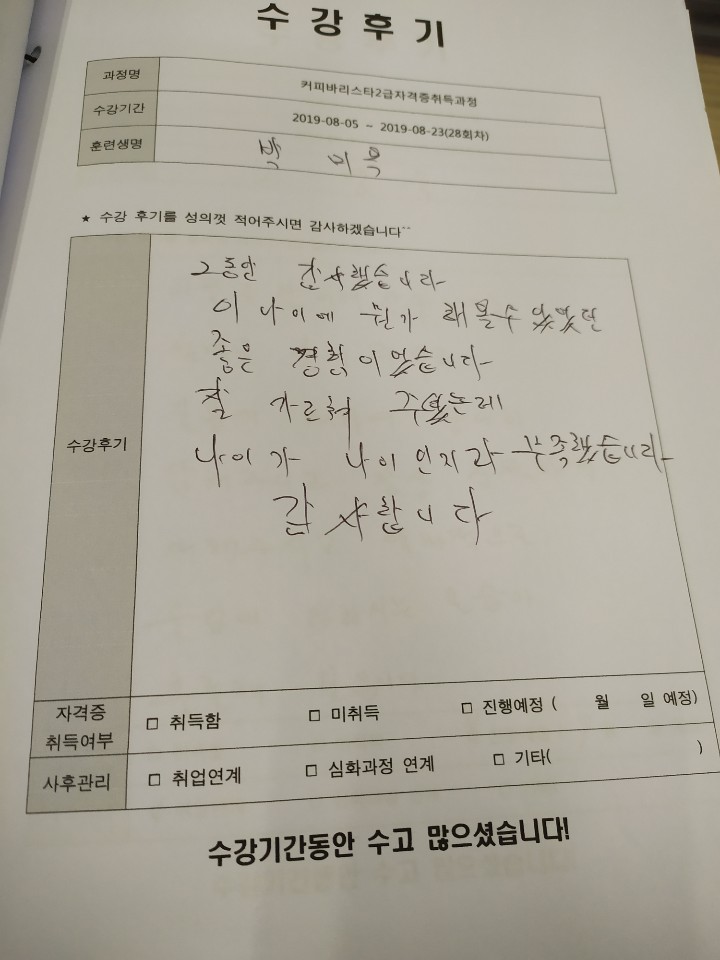 수 강 후 기
과정명 커피바리스타2급자격증취득과정
수강기간 2019-08-05 ~ 2019-08-23(28회차)
훈련생명 박 미옥
★ 수강 후기를 성의껏 적어주시면 감사하겠습니다^^
수강후기
그동안 감사했습니다
이 나이에 뭔가 해볼수 있었던
좋은 경험이었습니다
잘 가르쳐 주셨는데
나이가 나이인지라 부족했습니다
감사합니다
자격증 취득여부 □ 취득함 □ 미취득 □ 진행예정 ( 월 일 예정)
사후관리 □ 취업연계 □ 심화과정 연계 □ 기타( )
수강기간동안 수고 많으셨습니다!